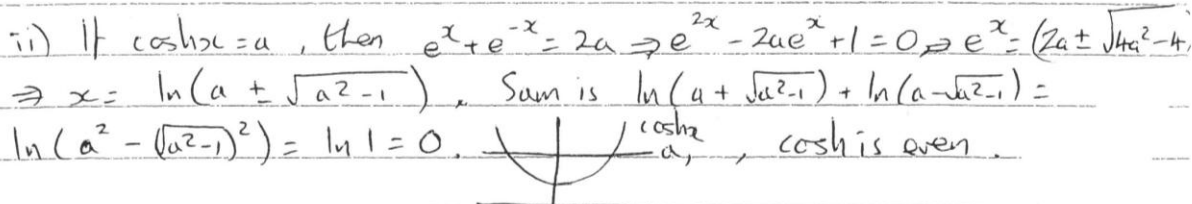 ii) If coshx = a, then eˣ + e⁻ˣ = 2a ⇒ e²ˣ - 2aeˣ + 1 = 0 ⇒ eˣ = (2a ± √4a²-4
⇒ x = ln(a ± √a²-1). Sum is ln(a + √a²-1) + ln(a - √a²-1) =
ln(a² - (√a²-1)²) = ln 1 = 0. coshx a, , cosh is even.